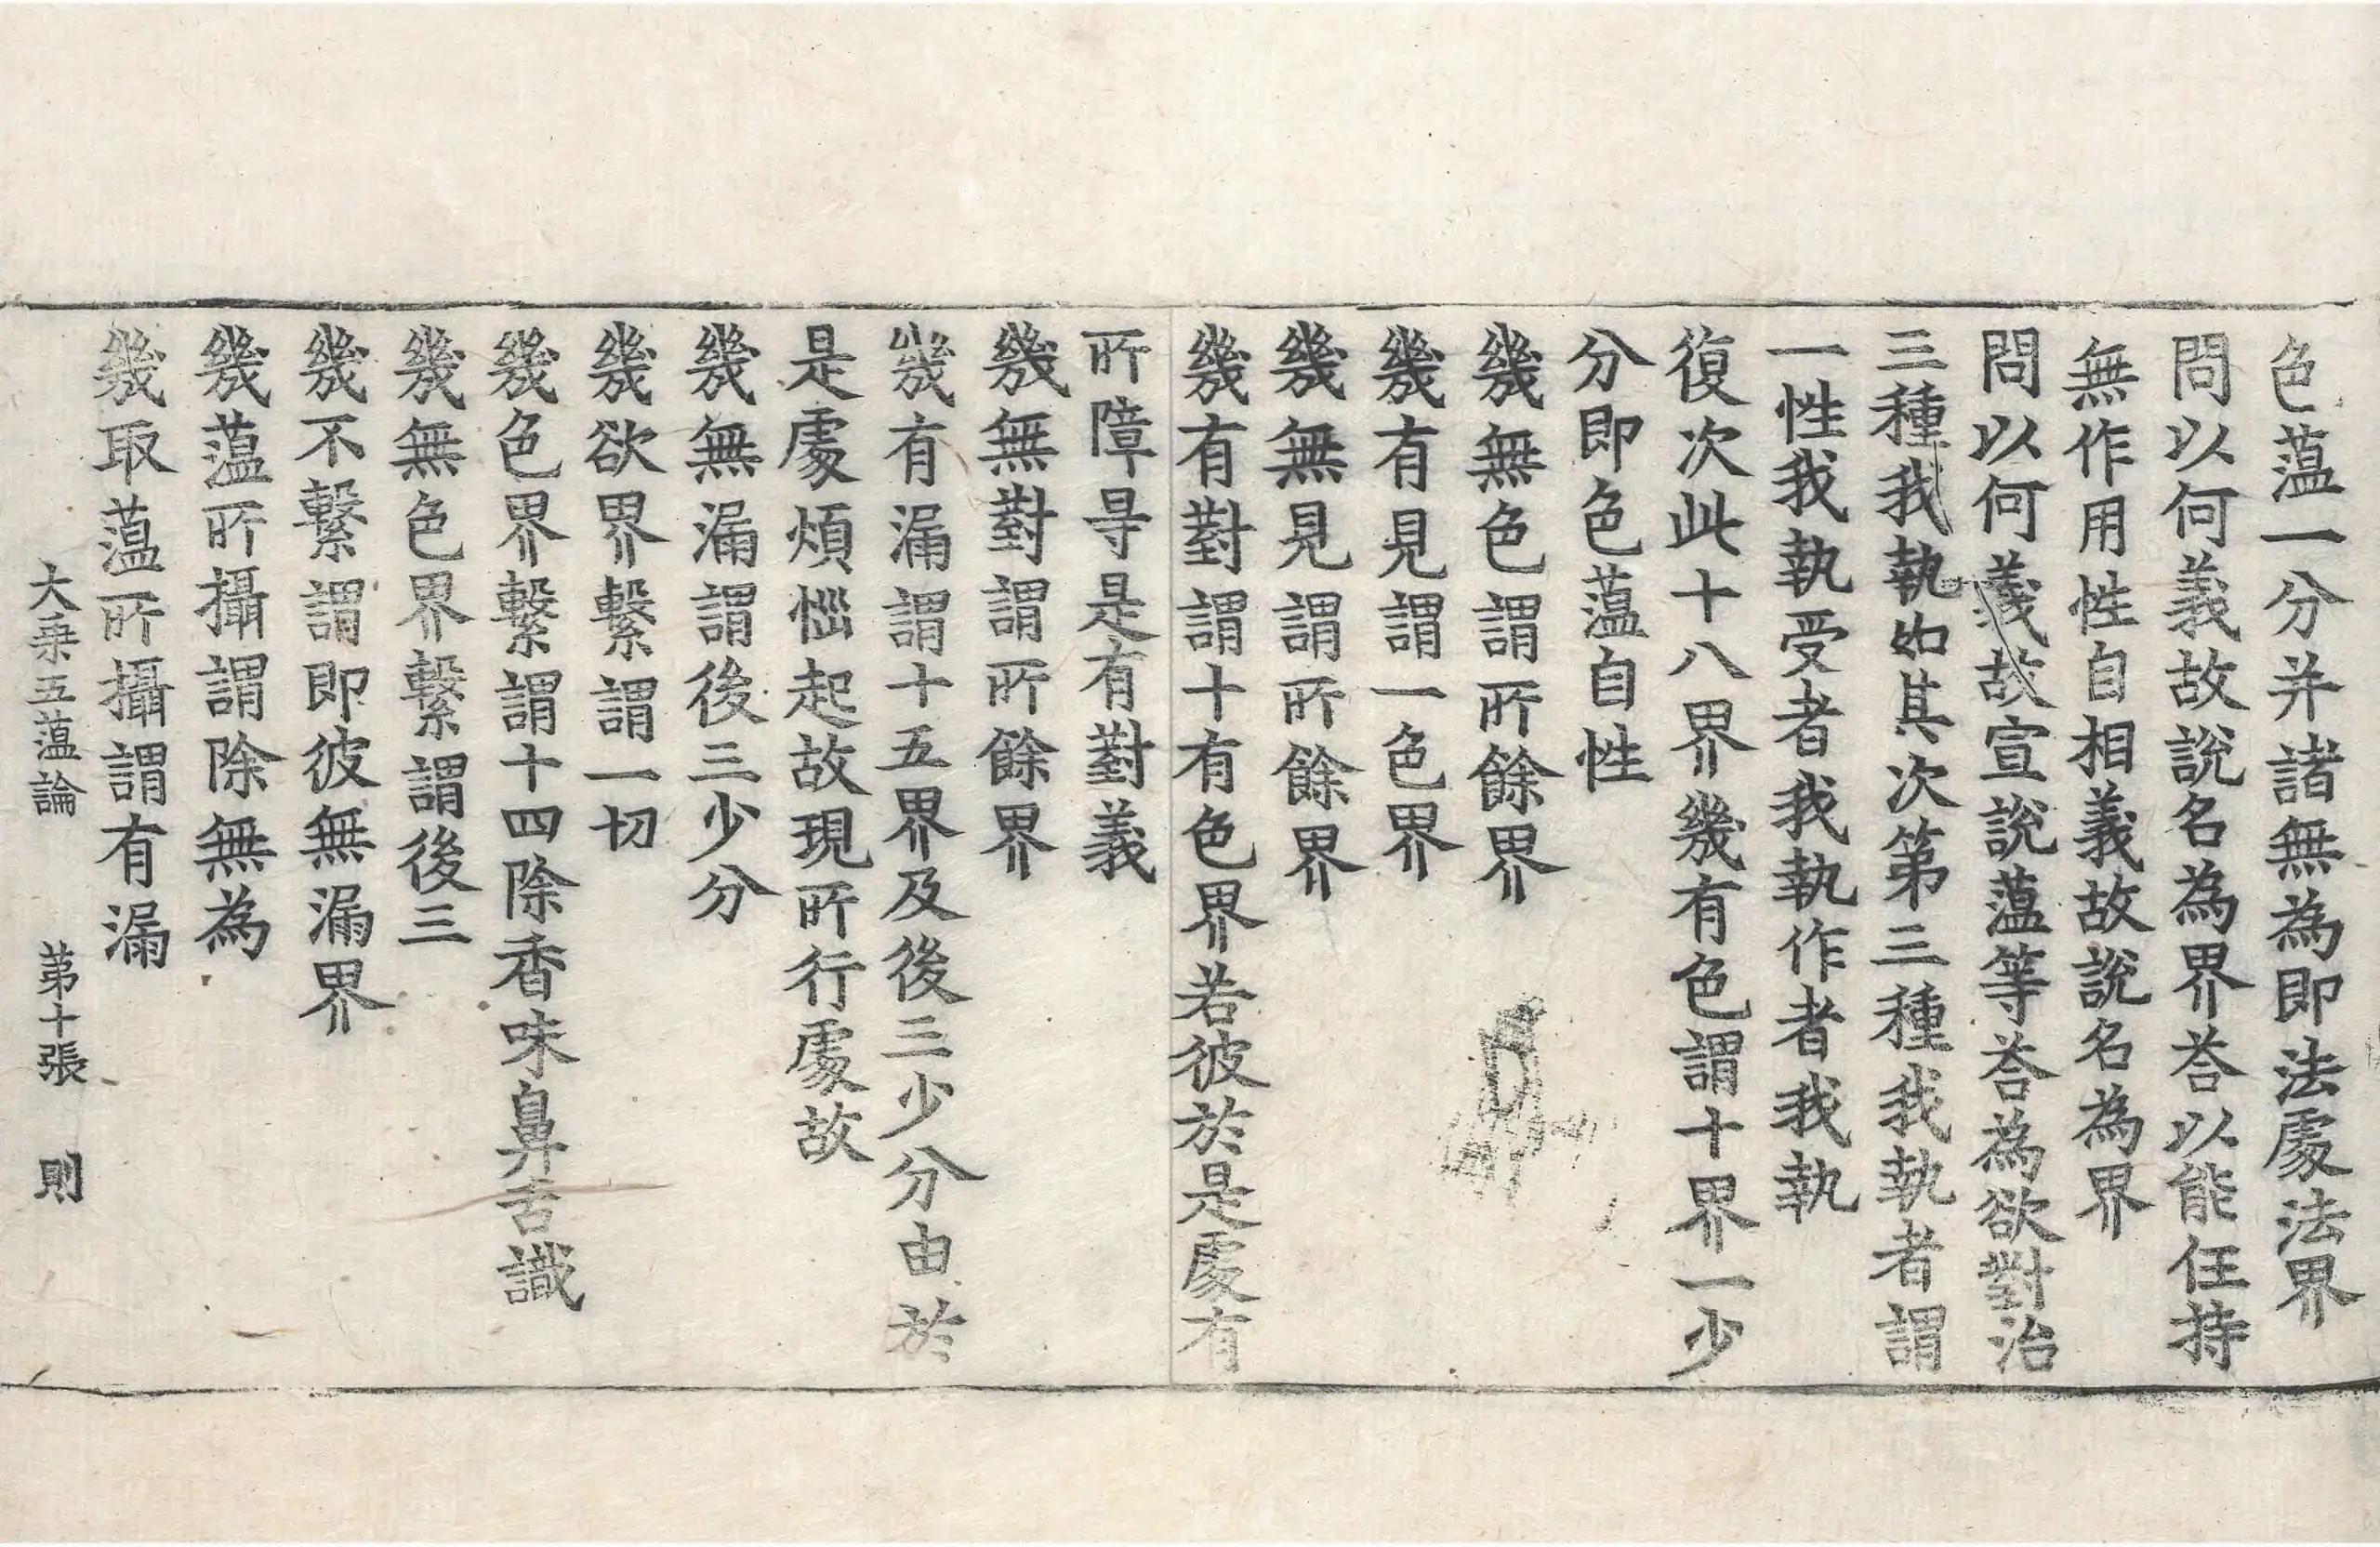 色蕰一分并諸無為即法處法界
問以何義故說名為界荅以能任持
無作用性自相義故說名為界
問以何義故宣說蕰等荅為欲對治
三種我執如其次第三種我執者謂
一性我執受者我執作者我執
復次此十八界幾有色謂十界一少
分即色蕰自性
幾無色謂所餘界
幾有見謂一色界
幾無見謂所餘界
幾有對謂十有色界若彼於是處有
所障㝵是有對義
幾無對謂所餘界
幾有漏謂十五界及後三少分由於
是處煩惱起故現所行處故
幾無漏謂後三少分
幾欲界繫謂一切
幾色界繫謂十四除香味鼻舌識
幾無色界繫謂後三
幾不繫謂即彼無漏界
幾蕰所攝謂除無為
幾取蕰所攝謂有漏
大乗五蕰論 第十張 則